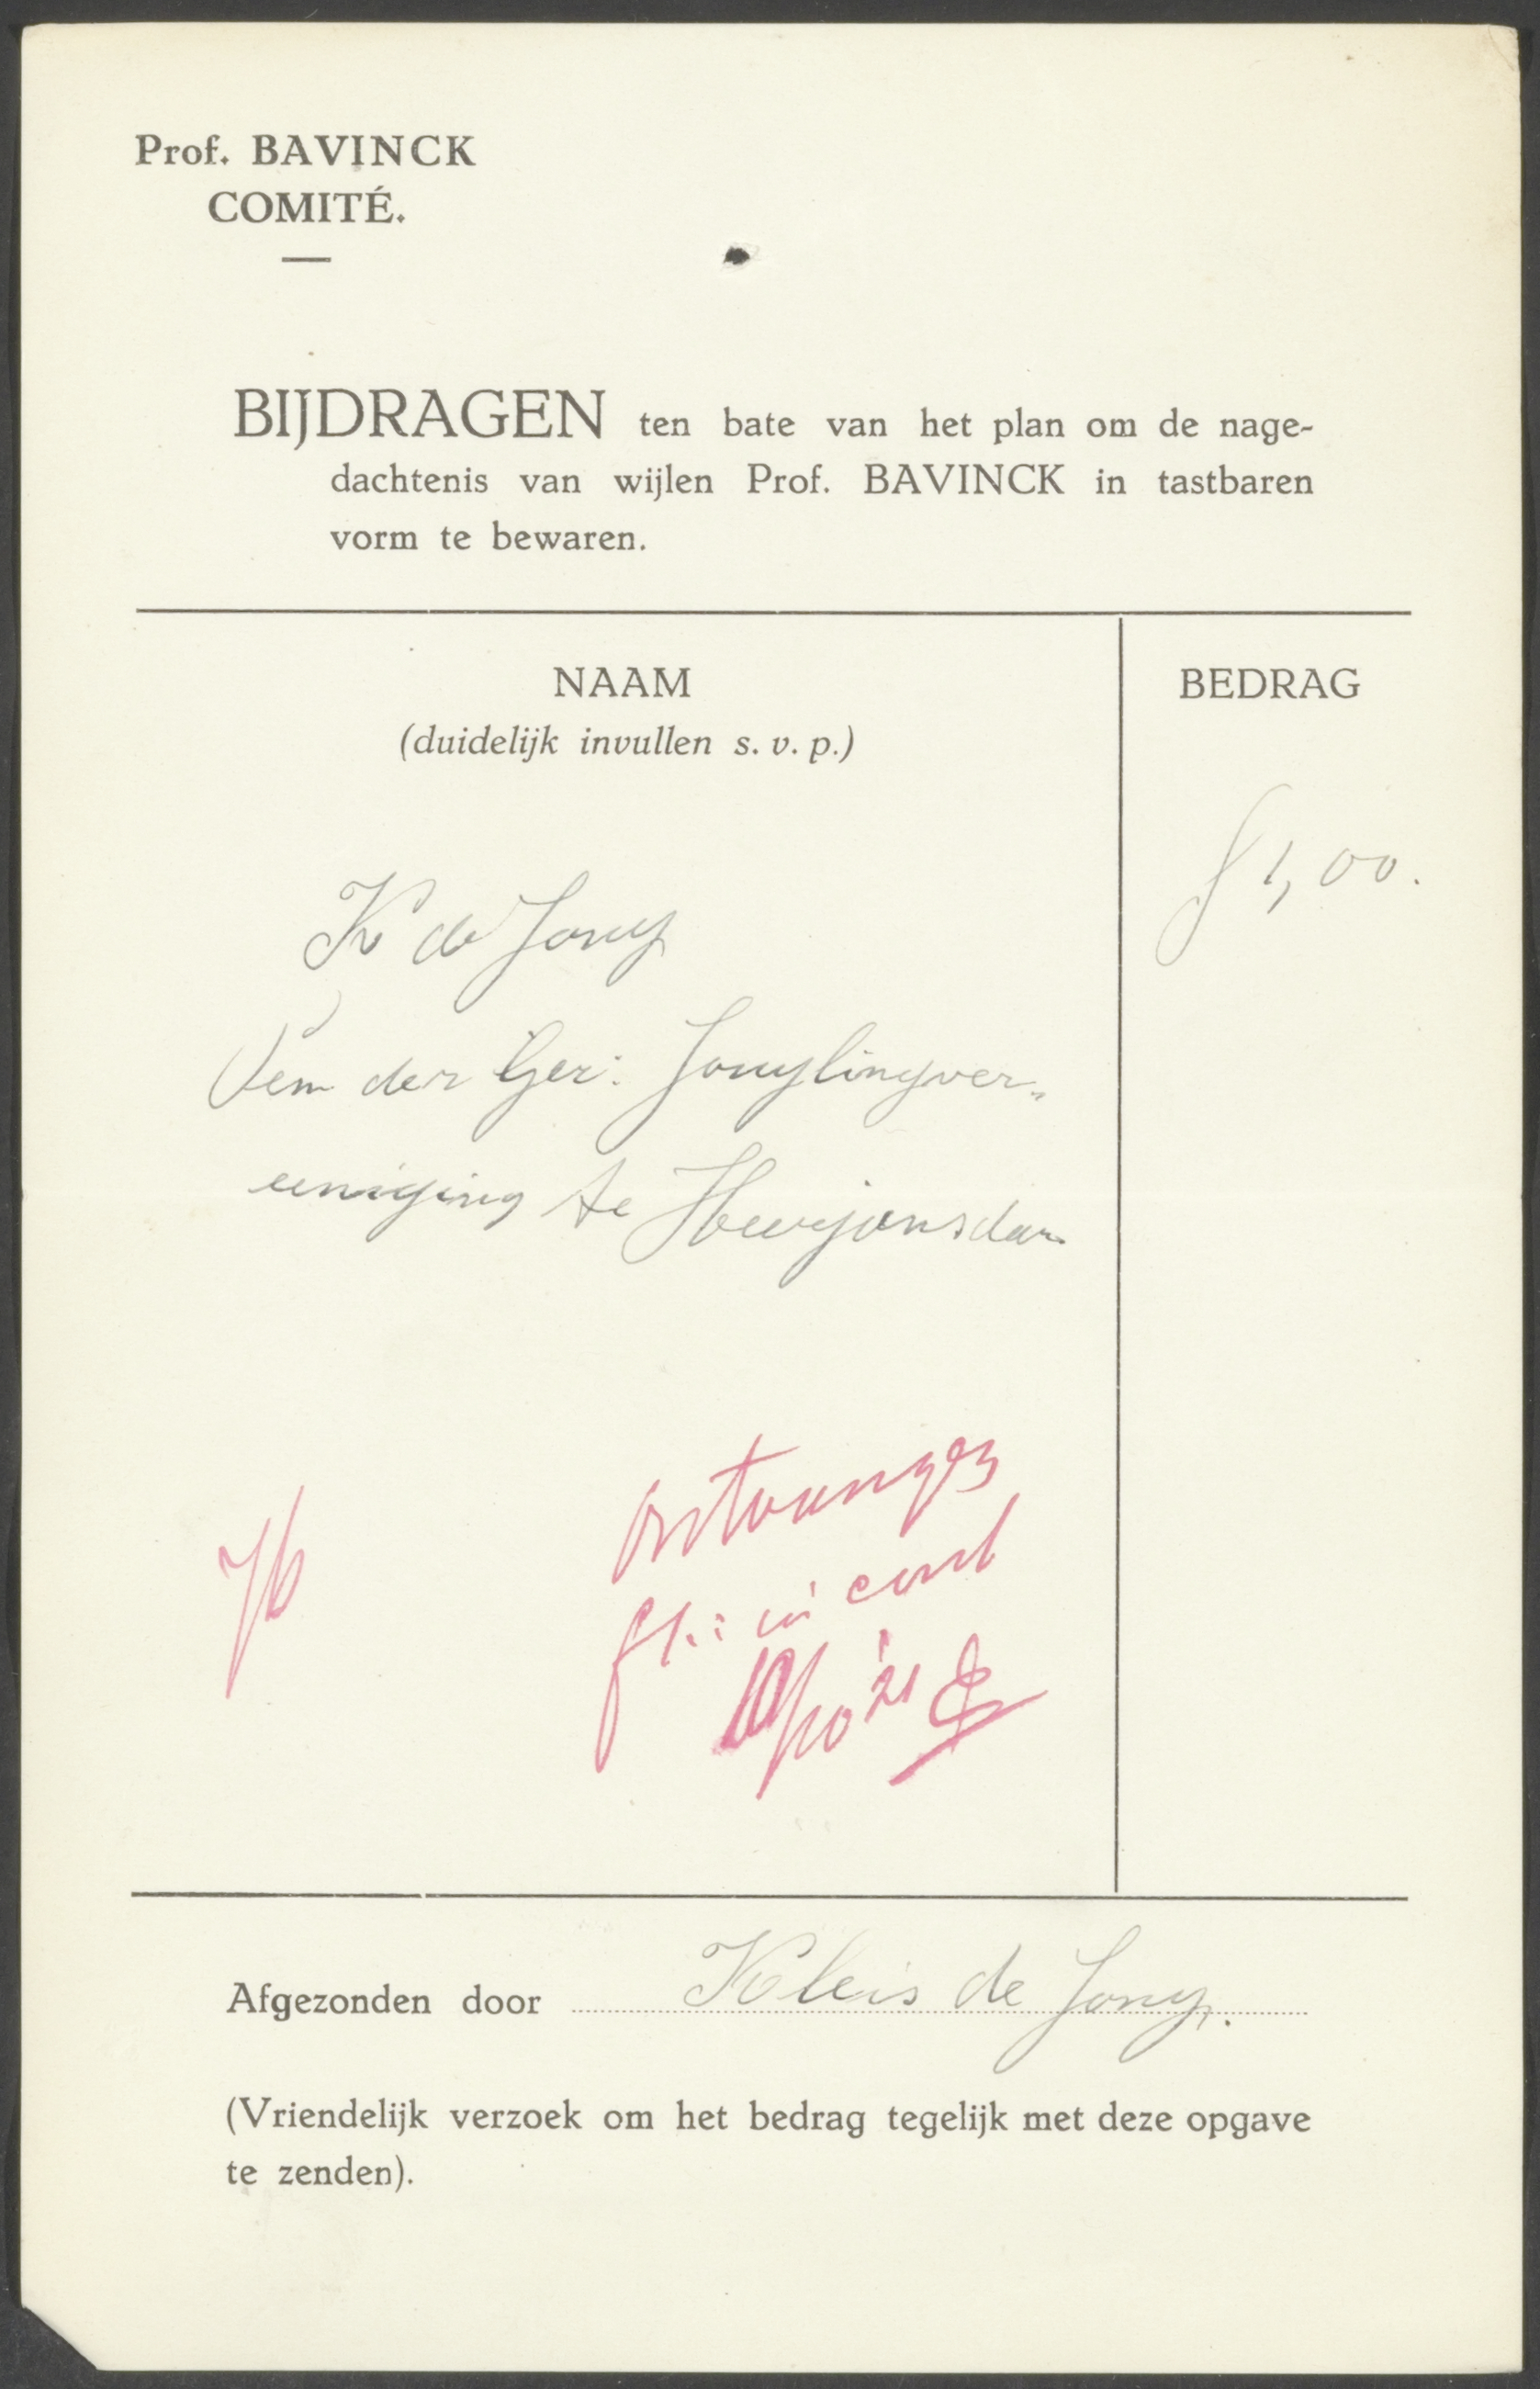 Prof. BAVINCK
COMITÉ.
BIJDRAGEN ten bate van het plan om de nage-
dachtenis van wijlen Prof. BAVINCK in tastbaren
vorm te bewaren.
NAAM
BEDRAG
(duidelijk invullen s. v. p.)
f 1,00.
K de Jong
der Ger: Jonglingver„
eeniging te
ontvangen
f 1.: in
10/10 '21
Afgezonden door Kleis de Jong.
(Vriendelijk verzoek om het bedrag tegelijk met deze opgave
te zenden).